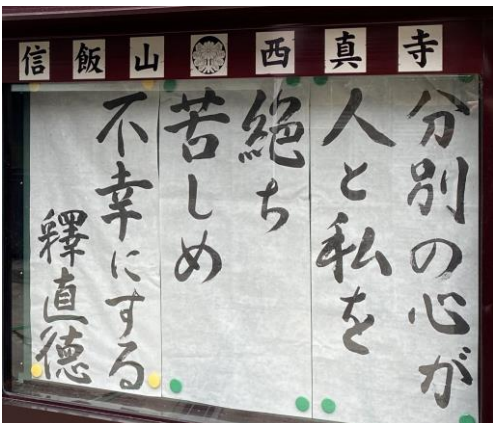 信飯山 西真寺
分別の心が
人と私を
絶ち
苦しめ
不幸にする
釋直徳